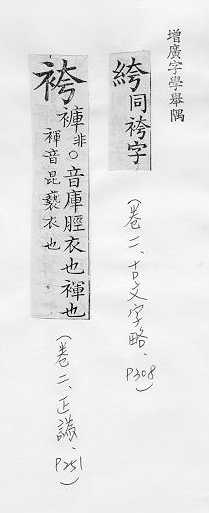 增廣字學舉隅
絝同袴字
(卷二、古文字略、P308)
袴
褲非○音庫脛衣也褌也
褌音昆褻衣也
(卷二、正譌、P251)